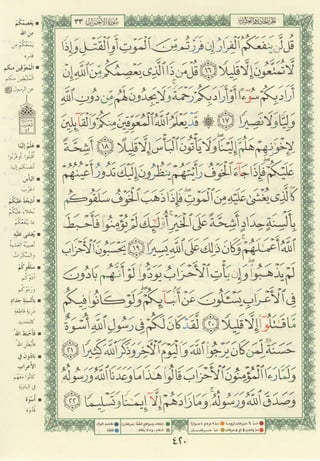 سُورَةُ الأحْزَابِ ٣٣
قُل لَّن يَنفَعَكُمُ ٱلْفِرَارُ إِن فَرَرْتُم مِّنَ ٱلْمَوْتِ أَوِ ٱلْقَتْلِ وَإِذًا
لَّا تُمَتَّعُونَ إِلَّا قَلِيلًا ١٦ قُلْ مَن ذَا ٱلَّذِى يَعْصِمُكُم مِّنَ ٱللَّهِ إِنْ
أَرَادَ بِكُمْ سُوٓءًا أَوْ أَرَادَ بِكُمْ رَحْمَةً وَلَا يَجِدُونَ لَهُم مِّن دُونِ ٱللَّهِ
وَلِيًّا وَلَا نَصِيرًا ١٧ قَدْ يَعْلَمُ ٱللَّهُ ٱلْمُعَوِّقِينَ مِنكُمْ وَٱلْقَآئِلِينَ
لِإِخْوَٰنِهِمْ هَلُمَّ إِلَيْنَا وَلَا يَأْتُونَ ٱلْبَأْسَ إِلَّا قَلِيلًا ١٨ أَشِحَّةً
عَلَيْكُمْ فَإِذَا جَآءَ ٱلْخَوْفُ رَأَيْتَهُمْ يَنظُرُونَ إِلَيْكَ تَدُورُ أَعْيُنُهُمْ
كَٱلَّذِى يُغْشَىٰ عَلَيْهِ مِنَ ٱلْمَوْتِ فَإِذَا ذَهَبَ ٱلْخَوْفُ سَلَقُوكُم
بِأَلْسِنَةٍ حِدَادٍ أَشِحَّةً عَلَى ٱلْخَيْرِ أُو۟لَٰٓئِكَ لَمْ يُؤْمِنُوا۟ فَأَحْبَطَ
ٱللَّهُ أَعْمَٰلَهُمْ وَكَانَ ذَٰلِكَ عَلَى ٱللَّهِ يَسِيرًا ١٩ يَحْسَبُونَ ٱلْأَحْزَابَ
لَمْ يَذْهَبُوا۟ وَإِن يَأْتِ ٱلْأَحْزَابُ يَوَدُّوا۟ لَوْ أَنَّهُم بَادُونَ
فِى ٱلْأَعْرَابِ يَسْـَٔلُونَ عَنْ أَنۢبَآئِكُمْ وَلَوْ كَانُوا۟ فِيكُم
مَّا قَٰتَلُوٓا۟ إِلَّا قَلِيلًا ٢٠ لَّقَدْ كَانَ لَكُمْ فِى رَسُولِ ٱللَّهِ أُسْوَةٌ
حَسَنَةٌ لِّمَن كَانَ يَرْجُوا۟ ٱللَّهَ وَٱلْيَوْمَ ٱلْـَٔاخِرَ وَذَكَرَ ٱللَّهَ كَثِيرًا ٢١
وَلَمَّا رَءَا ٱلْمُؤْمِنُونَ ٱلْأَحْزَابَ قَالُوا۟ هَٰذَا مَا وَعَدَنَا ٱللَّهُ وَرَسُولُهُۥ
وَصَدَقَ ٱللَّهُ وَرَسُولُهُۥ وَمَا زَادَهُمْ إِلَّآ إِيمَٰنًا وَتَسْلِيمًا ٢٢
٤٢٠
يَعْصِمُكُمْ
مِنَ اللهِ
المُعَوِّقِينَ مِنكُم
هَلُمَّ إِلَيْنَا
البَأْسَ
أَشِحَّةً عَلَيْكُمْ
يُغْشَى عَلَيْهِ
سَلَقُوكُمْ
بِأَلْسِنَةٍ حِدَادٍ
فَأَحْبَطَ اللهُ
بَادُونَ فِي
الأَعْرَابِ
أُسْوَةٌ